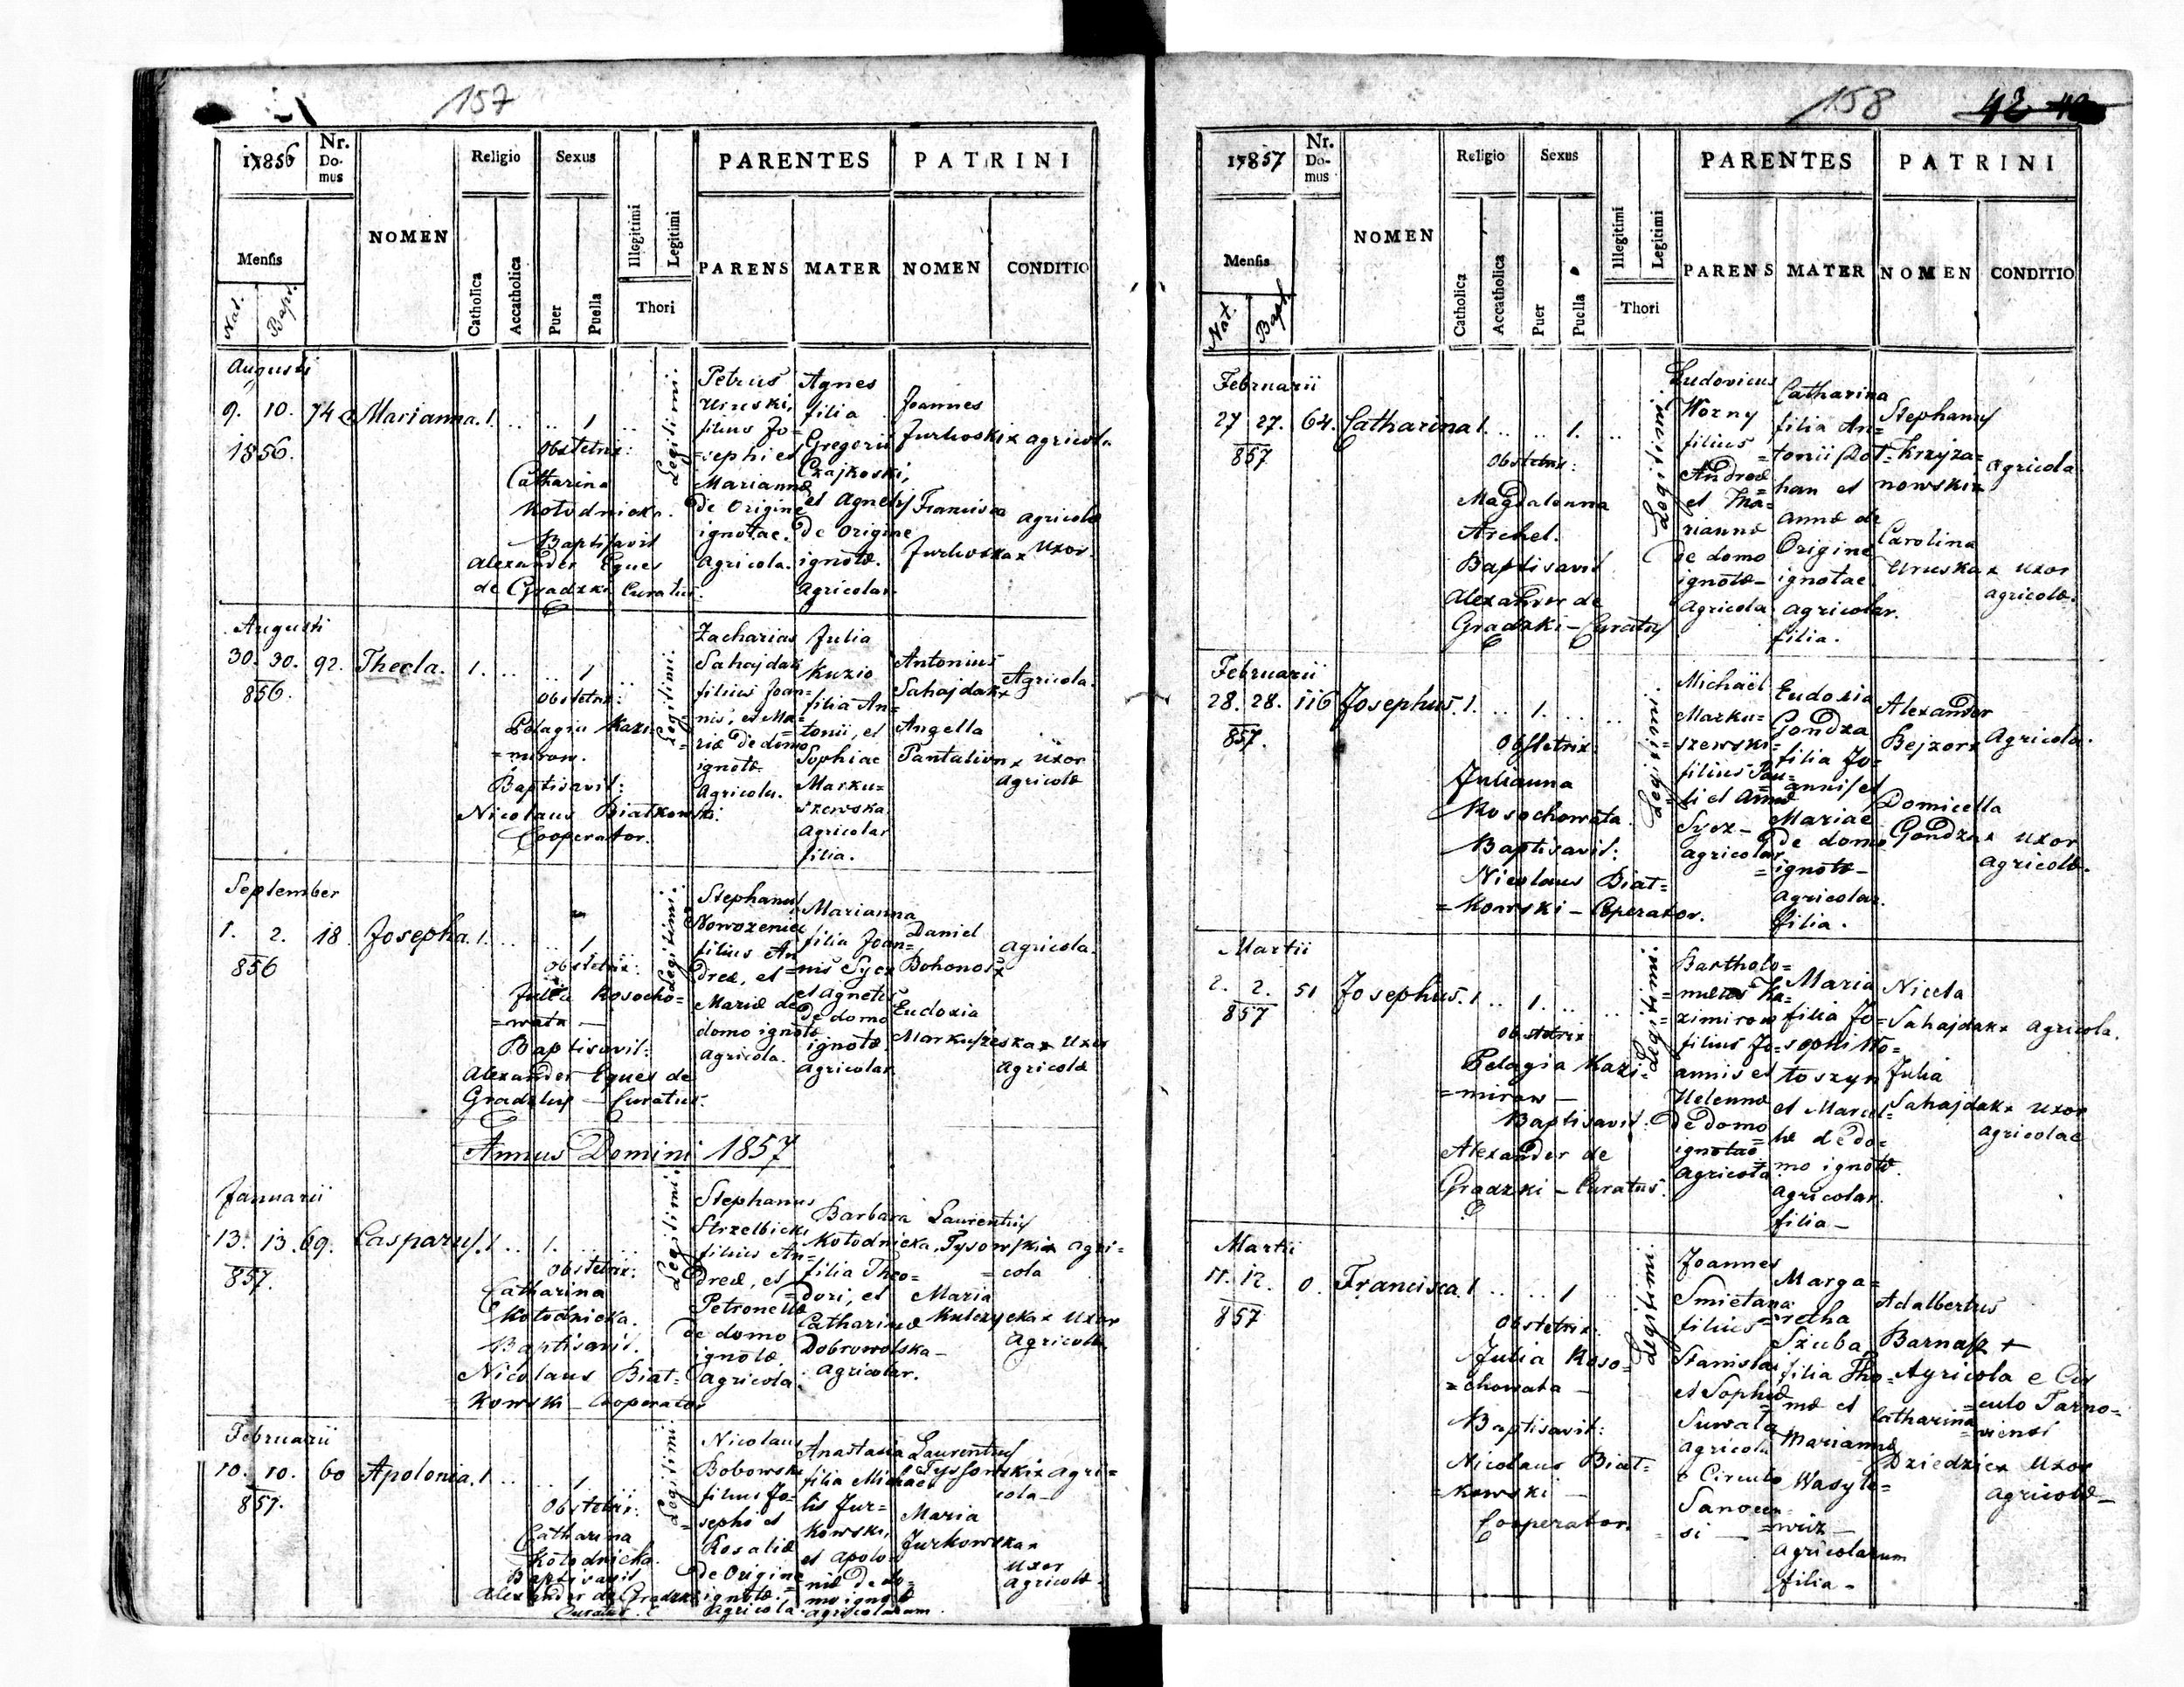 157
1856
Nr. Domus
NOMEN
Religio
Sexus
PARENTES
PATRINI
Mensis
Nat.
Bapt.
Catholica
Accatholica
Puer
Puella
Illegitimi
Legitimi
Thori
PARENS
MATER
NOMEN
CONDITIO
Augusti
9. 10. 74 Marianna. 1. .. .. 1 ..
1856.
Obstetrix:
Catharina
Kołodnicka.
Baptisavit
Alexander Eques
de Gradzki Curatus.
Legitimi.
Petrus
Uruski,
filius Jo=
=sephi et
Mariannæ
de Origine
ignotae.
Agricola.
Agnes
filia
Gregorii
Czajkoski,
et Agnetis
de Origine
ignotæ.
Agricolar.
Joannes
Jurkoski x agricola
Francisca
Jurkoska x
agricolæ
Uxor.
Augusti
30. 30. 92. Thecla. 1. .. .. 1 ..
856.
Obstetrix:
Pelagia Kazi=
=mirow.
Baptisavit:
Nicolaus Białkowski:
Cooperator.
Legitimi.
Zacharias
Sahajdak
filius Joan=
nis, et Ma=
riæ de domo
ignotæ
Agricola.
Julia
Kuzio
filia An=
tonii, et
Sophiae
Marku=
szewska
Agricolar
filia.
Antonius
Sahajdak x
Agricola.
Angella
Pantalion x
Uxor
Agricolæ
September
1. 2. 18. Josepha. 1. .. .. 1.
856
Obstetrix:
Julia Kosocho=
=wata —
Baptisavit:
Alexander Eques de
Curatus.
Legitimi.
Stephanus
filius An
dreæ, et
Mariæ de
domo ignotæ
Agricola.
Marianna
filia Joan=
=nis Sycz
et Agnetis
de domo
ignotæ.
Agricolar
Daniel
Bohonos x
agricola.
Eudoxia
Uxor
Agricolæ
Annus Domini 1857
Januarii
13. 13. 69. Casparus. 1 .. 1. .. ..
857.
Obstetrix:
Catharina
Kołodnicka.
Baptisavit.
Nicolaus Biał=
=kowski — Cooperator
Legitimi.
Stephanus
Strzelbicki
filius An=
dreæ, et
Petronellæ
de domo
ignotæ.
Agricola.
Barbara
Kołodnicka,
filia Theo=
=dori, et
Catharinæ
Dobrowolska —
Agricolar.
Laurentius
Tysowski x Agri=
=cola
Maria
Kulczycka x Uxor
Agricolæ
Februarii
10. 10. 60 Apolonia. 1 .. .. 1 ..
857.
Obstetrix:
Catharina
Kołodnicka.
Baptisavit
Alexander de Gradzki
Curatus.
Legitimi.
Nicolaus
Bobowski
filius Jo=
=sephi et
Rosaliæ
de Origine
ignotæ.
Agricola.
Anastasia
filia Michae=
lis Jur=
kowski,
et Apolo=
niæ de do=
mo ignotæ
agricolarum
Laurentius
Tyssowski x agri=
cola —
Maria
Jurkowska x
Uxor
Agricolæ.
158
42
1857
Nr. Domus
NOMEN
Religio
Sexus
PARENTES
PATRINI
Mensis
Nat.
Bapt.
Catholica
Accatholica
Puer
Puella
Illegitimi
Legitimi
Thori
PARENS
MATER
NOMEN
CONDITIO
Februarii
27 27. 64. Catharina 1. .. .. 1. ..
857
Obstetrix:
Magdalenna
Archel.
Baptisavit
Alexander de
Gradzki — Curatus
Legitimi.
Ludovicus
Worny
filius
Andreæ
et Ma=
riannæ
de domo
ignotæ —
Agricola
Catharina
filia An=
=tonii
han et
Annæ de
Origine
ignotae
agricolar.
filia.
Stephanus
Krzyża=
nowski x
agricola
Carolina
Uruska x uxor
agricolæ.
Februarii
28. 28. 116 Josephus. 1. .. 1. .. ..
857.
Obstetrix:
Julianna
Kosochowata.
Baptisavit:
Nicolaus Biał=
=kowski — Coperator.
Legitimi.
Michaël
Marku=
szewski
filius Pau=
=li et Annæ
Sycz —
agricolar
Eudoxia
Gondza
filia Jo=
=annis et
Mariae
de domo
=ignotæ —
Agricolar.
filia.
Alexander
Bejzor x Agricola.
Domicella
Gondza x uxor
agricolæ.
Martii
2. 2. 51 Josephus. 1 .. 1. .. ..
857
Obstetrix
Pelagia Kazi=
=mirow —
Baptisavit.
Alexander de
Gradzki — Curatus.
Legitimi.
Bartholo=
=mæus Ka=
zimirow
filius Jo=
annis et
Helennæ
de domo
ignotae
Agricola
Maria
filia Jo=
=sephi Wo=
toszyn
et Marcel=
læ de do=
mo ignotæ.
Agricolar.
filia —
Niceta
Sahajdak x agricola.
Julia
Sahajdak x uxor
agricolae
Martii
11. 12. 0. Francisca. 1 .. .. 1
857
Obstetrix:
Julia Koso=
=chowata —
Baptisavit:
Nicolaus Biał=
=kowski —
Cooperator.
Legitimi.
Joannes
Smietana
filius
Stanislai
et Sophiæ
Suwała
Agricola
e Circulo
Sanocen=
si —
Marga=
=retha
Szuba
filia Tho=
mæ et
Mariannæ
Wasyle=
=wicz —
agricolarum
filia —
Adalbertus
Barnaś +
Agricola e Cir
=culo Tarno=
=viensi
Catharina
Dziedzic x Uxor
agricolæ —